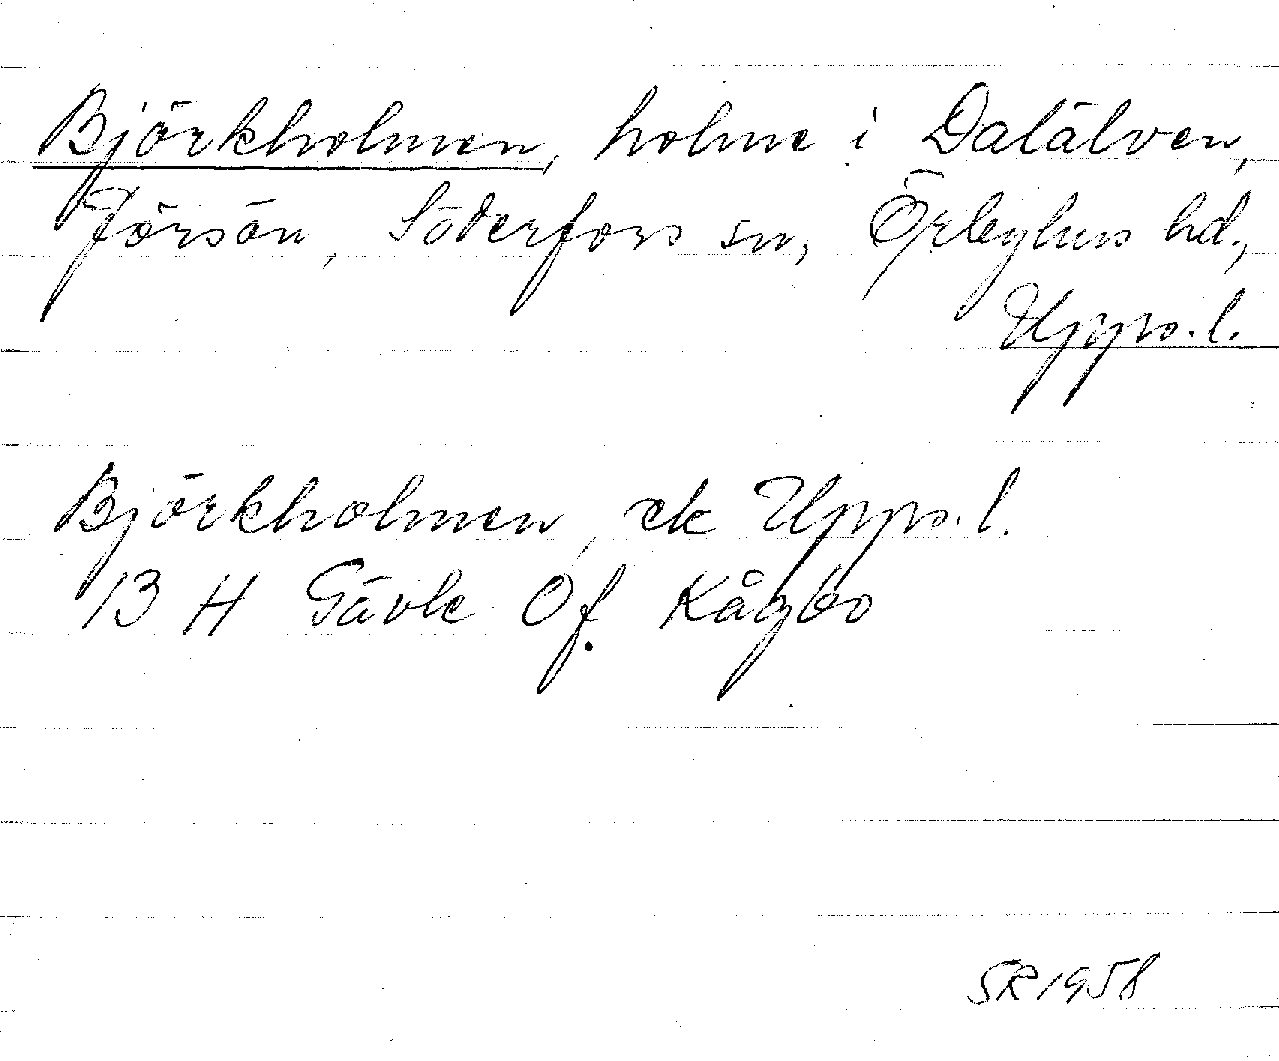 Björkholmen, holme i Dalälven,
Jörsön, Söderfors sn, Örbyhus hd.,
Upps. l.
Björkholmen, ek Upps. l.
13 H Gävle Of. Kågbo
SR 1958